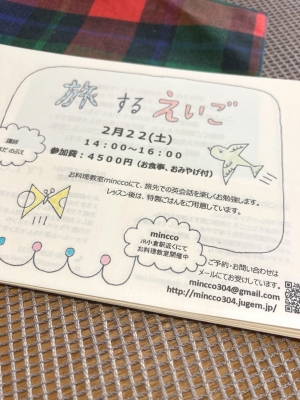 旅するえいご
2月22(土)
14:00〜16:00
参加費:4500円(お食事、おみやげ付)
講師
お料理教室minccoにて、旅先での英会話を楽しくお勉強します。
レッスン後は、特製ごはんをご用意しています。
mincco
JR小倉駅近くにて
お料理教室開催中
ご予約・お問い合わせは
メールにてお受けしています。
mincco304@gmail.com
http://mincco304.jugem.jp/